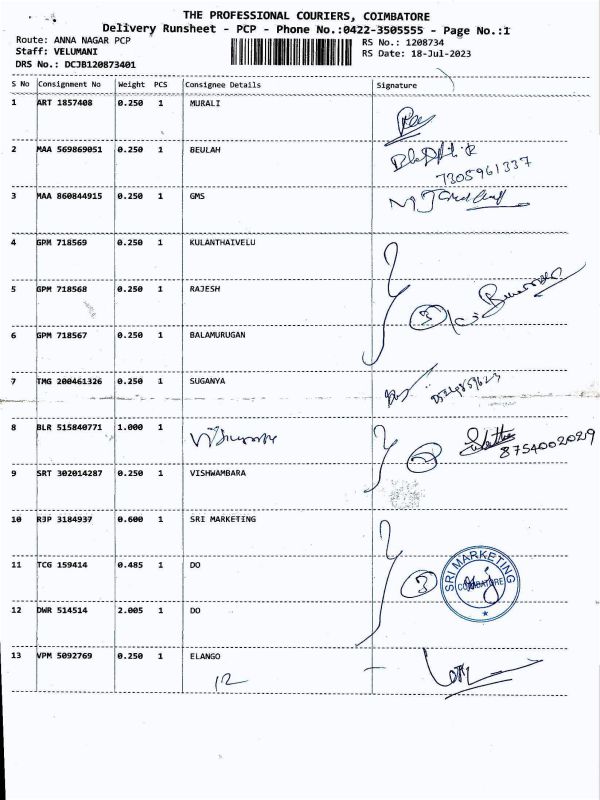 THE PROFESSIONAL COURIERS, COIMBATORE
Delivery Runsheet - PCP - Phone No.:0422-3505555 - Page No.:1
Route: ANNA NAGAR PCP
Staff: VELUMANI
DRS No.: DCJB120873401
RS No.: 1208734
RS Date: 18-Jul-2023
S No Consignment No Weight PCS Consignee Details Signature
1 ART 1857408 0.250 1 MURALI
2 MAA 569869051 0.250 1 BEULAH
7305961337
3 MAA 860844915 0.250 1 GMS
4 GPM 718569 0.250 1 KULANTHAIVELU
5 GPM 718568 0.250 1 RAJESH
3
6 GPM 718567 0.250 1 BALAMURUGAN
7 TMG 200461326 0.250 1 SUGANYA
8 BLR 515840771 1.000 1
2 8754002029
9 SRT 302014287 0.250 1 VISHWAMBARA
10 RJP 3184937 0.600 1 SRI MARKETING
11 TCG 159414 0.485 1 DO
3 SRI MARKETING COIMBATORE
12 DWR 514514 2.005 1 DO
13 VPM 5092769 0.250 1 ELANGO
12